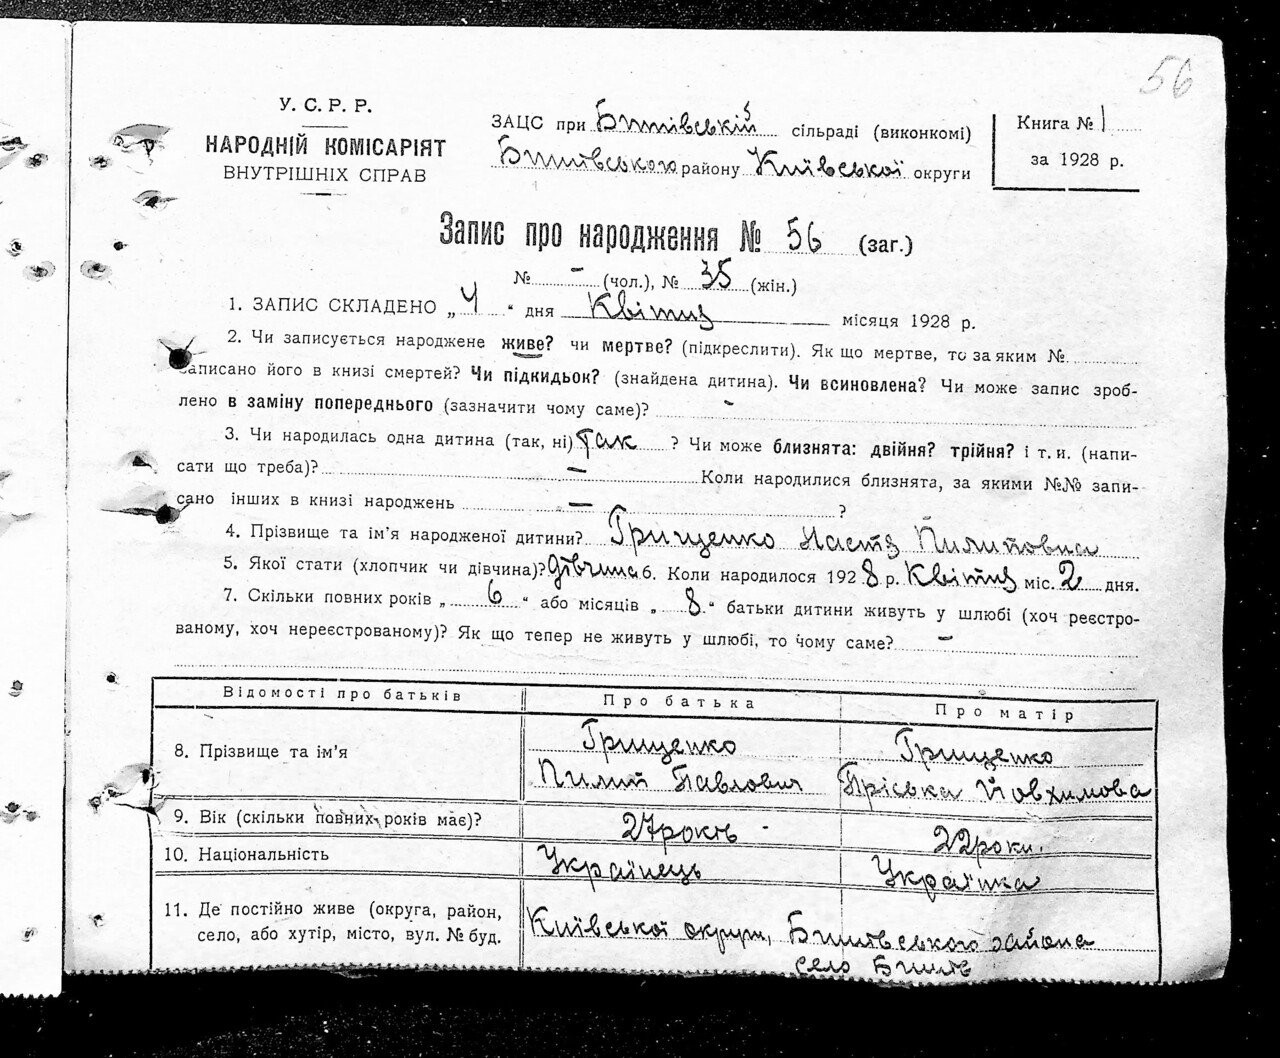 56
У. С. Р. Р.
НАРОДНІЙ КОМІСАРІЯТ
ВНУТРІШНІХ СПРАВ
ЗАЦС при Бишівській сільраді (виконкомі)
Бишівського району Київської округи
Книга № 1
за 1928 р.
Запис про народження № 56 (заг.)
№ - (чол.), № 35 (жін.)
1. ЗАПИС СКЛАДЕНО „ 4 " дня Квітня місяця 1928 р.
2. Чи записується народжене живе? чи мертве? (підкреслити). Як що мертве, то за яким №
записано його в книзі смертей? Чи підкидьок? (знайдена дитина). Чи всиновлена? Чи може запис зроб-
лено в заміну попереднього (зазначити чому саме)? -
3. Чи народилась одна дитина (так, ні) Так ? Чи може близнята: двійня? трійня? і т. и. (напи-
сати що треба)? - Коли народилися близнята, за якими №№ запи-
сано інших в книзі народжень - ?
4. Прізвище та ім'я народженої дитини? Грищенко Настя Пилиповна
5. Якої стати (хлопчик чи дівчина)? дівчина 6. Коли народилося 1928 р. Квітня міс. 2 дня.
7. Скільки повних років „ 6 " або місяців „ 8 " батьки дитини живуть у шлюбі (хоч реєстро-
ваному, хоч нереєстрованому)? Як що тепер не живуть у шлюбі, то чому саме? -
Відомості про батьків Про батька Про матір
8. Прізвище та ім'я Грищенко Пилип Павлович Грищенко Пріська Йовхимова
9. Вік (скільки повних років має)? 27 років 22 роки.
10. Національність Українець Українка
11. Де постійно живе (округа, район,
село, або хутір, місто, вул. № буд.
Київської округи, Бишівського района
село Бишів